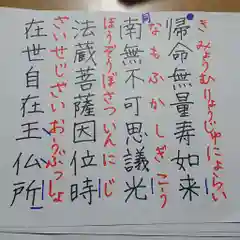 帰命無量寿如来
きみょうむりょうじゅにょらい
南無不可思議光
なもふかしぎこう
法蔵菩薩因位時
ほうぞうぼさついんにじ
在世自在王仏所
ざいせじざいおうぶっしょ